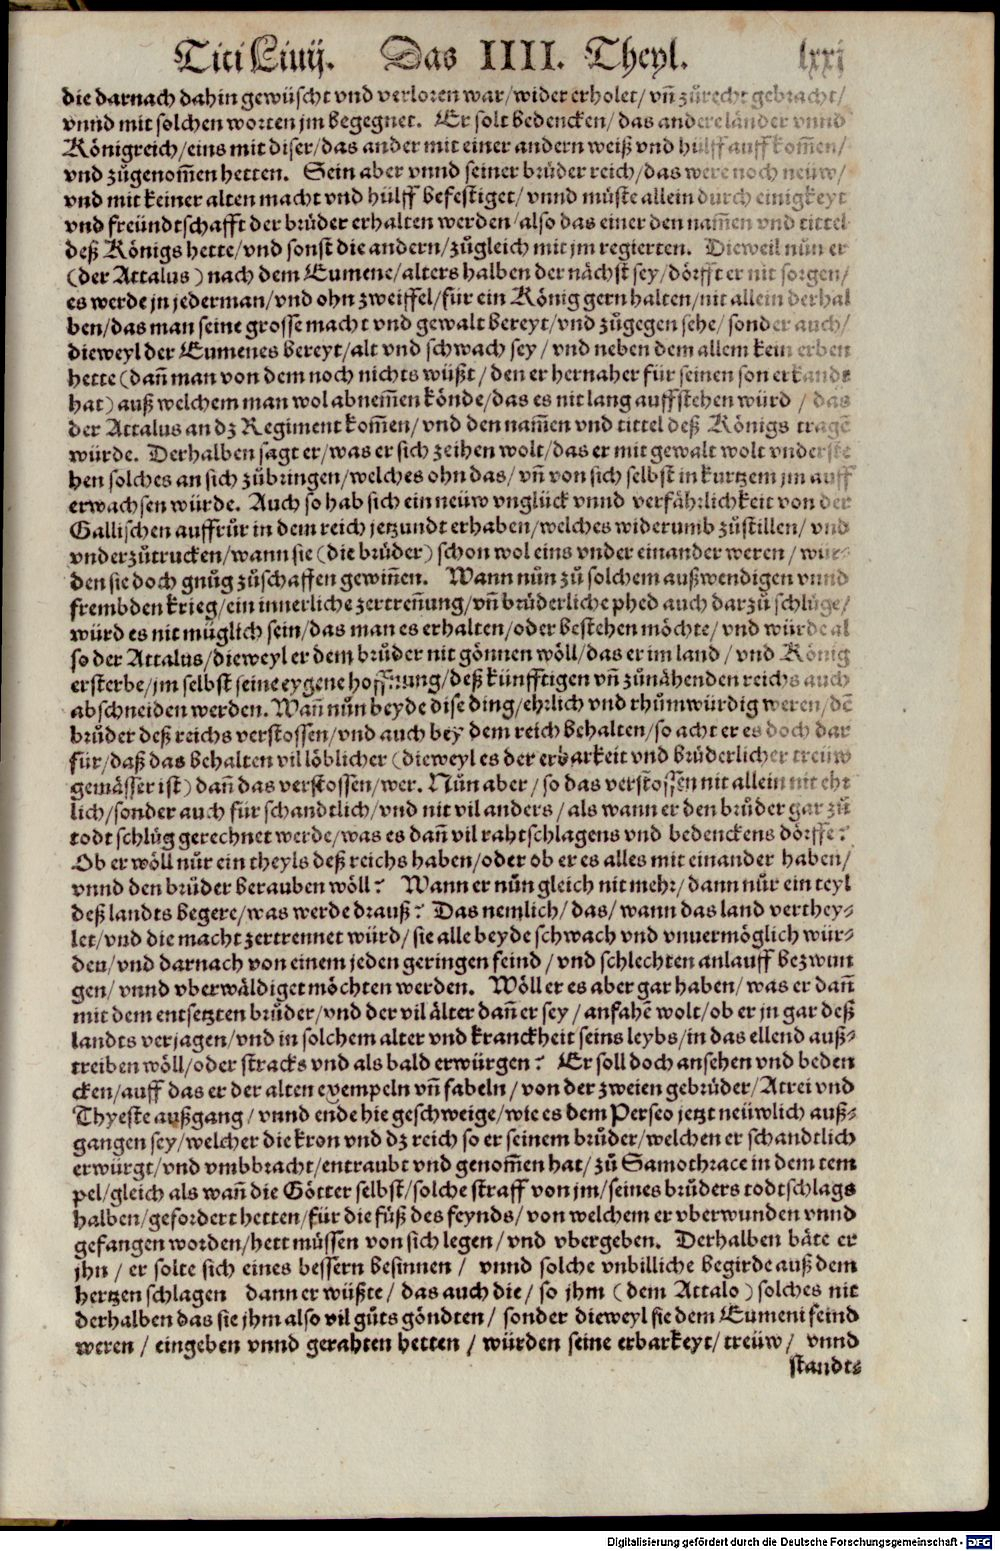 Titi Liuij. Das IIII. Theyl. lxxj
die darnach dahin gewüscht vnd verloren war/ wider erholet/ vñ zůrecht gebracht/
vnnd mit solchen worten jm begegnet. Er solt bedencken/ das andere länder vnnd
Königreich/ eins mit diser/ das ander mit einer andern weiß vnd hülff auff kom̃en/
vnd zůgenom̃en hetten. Sein aber vnnd seiner brüder reich/ das were noch neüw/
vnd mit keiner alten macht vnd hülff befestiget/ vnnd müste allein durch einigkeyt
vnd freündtschafft der brüder erhalten werden/ also das einer den nam̃en vnd tittel
deß Königs hette/ vnd sonst die andern/ zůgleich mit jm regierten. Dieweil nůn er
(der Attalus) nach dem Eumene/ alters halben der nächst sey/ dörfft er nit sorgen/
es werde jn jederman/ vnd ohn zweiffel/ für ein König gern halten/ nit allein derhal
ben/ das man seine grosse macht vnd gewalt bereyt/ vnd zůgegen sehe/ sonder auch/
dieweyl der Eumenes bereyt/ alt vnd schwach sey/ vnd neben dem allem kein erben
hette (dañ man von dem noch nichts wüßt/ den er hernaher für seinen son erkandt
hat) auß welchem man wol abnem̃en könde/ das es nit lang auffstehen würd/ das
der Attalus an dz Regiment kom̃en/ vnd den nam̃en vnd tittel deß Königs tragẽ
würde. Derhalben sagt er/ was er sich zeihen wolt/ das er mit gewalt wolt vnderste
hen solches an sich zůbringen/ welches ohn das/ vñ von sich selbst in kurtzem jm auff
erwachsen würde. Auch so hab sich ein neüw vnglück vnnd verfährlichkeit von der
Gallischen auffrůr in dem reich jetzundt erhaben/ welches widerumb zůstillen/ vnd
vnderzůtrucken/ wann sie (die brüder) schon wol eins vnder einander weren/ wür-
den sie doch gnůg zůschaffen gewiñen. Wann nůn zů solchem außwendigen vnnd
frembden krieg/ ein innerliche zertreñung/ vñ brüderliche phed auch darzů schlüge/
würd es nit müglich sein/ das man es erhalten/ oder bestehen möchte/ vnd würde al
so der Attalus/ dieweyl er dem brůder nit gönnen wöll/ das er im land/ vnd König
ersterbe/ jm selbst seine eygene hoffnung/ deß künfftigen vñ zůnähenden reichs auch
abschneiden werden. Wañ nůn beyde dise ding/ ehrlich vnd rhůmwürdig weren/ dẽ
brůder deß reichs verstossen/ vnd auch bey dem reich behalten/ so acht er es doch dar
für/ daß das behalten vil löblicher (dieweyl es der erbarkeit vnd brüderlicher treüw
gemässer ist) dañ das verstossen/ wer. Nůn aber/ so das verstossen nit allein nit ehr
lich/ sonder auch für schandtlich/ vnd nit vil anders/ als wann er den brůder gar zů
todt schlůg gerechnet werde/ was es dañ vil rahtschlagens vnd bedenckens dörffe?
Ob er wöll nůr ein theyls deß reichs haben/ oder ob er es alles mit einander haben/
vnnd den brůder berauben wöll? Wann er nůn gleich nit mehr/ dann nůr ein teyl
deß landts begere/ was werde drauß? Das nemlich/ das/ wann das land verthey-
let/ vnd die macht zertrennet würd/ sie alle beyde schwach vnd vnuermöglich wür-
den/ vnd darnach von einem jeden geringen feind/ vnd schlechten anlauff bezwun
gen/ vnnd vberwäldiget möchten werden. Wöll er es aber gar haben/ was er dañ
mit dem entsetzten brůder/ vnd der vil älter dañ er sey/ anfahẽ wolt/ ob er jn gar deß
landts verjagen/ vnd in solchem alter vnd kranckheit seins leybs/ in das ellend auß-
treiben wöll/ oder stracks vnd als bald erwürgen? Er soll doch ansehen vnd beden
cken/ auff das er der alten exempeln vñ fabeln/ von der zweien gebrüder/ Atrei vnd
Thyeste außgang/ vnnd ende hie geschweige/ wie es dem Perseo jetzt neüwlich auß-
gangen sey/ welcher die kron vnd dz reich so er seinem brůder/ welchen er schandtlich
erwürgt/ vnd vmbbracht/ entraubt vnd genom̃en hat/ zů Samothrace in dem tem
pel/ gleich als wañ die Götter selbst/ solche straff von jm/ seines brůders todtschlags
halben/ gefordert hetten/ für die füß des feynds/ von welchem er vberwunden vnnd
gefangen worden/ hett müssen von sich legen/ vnd vbergeben. Derhalben bäte er
jhn/ er solte sich eines bessern besinnen/ vnnd solche vnbilliche begirde auß dem
hertzen schlagen dann er wüßte/ das auch die/ so jhm (dem Attalo) solches nit
derhalben das sie jhm also vil gůts göndten/ sonder dieweyl sie dem Eumeni feind
weren/ eingeben vnnd gerahten hetten/ würden seine erbarkeyt/ treüw/ vnnd
standt-
Digitalisierung gefördert durch die Deutsche Forschungsgemeinschaft - DFG